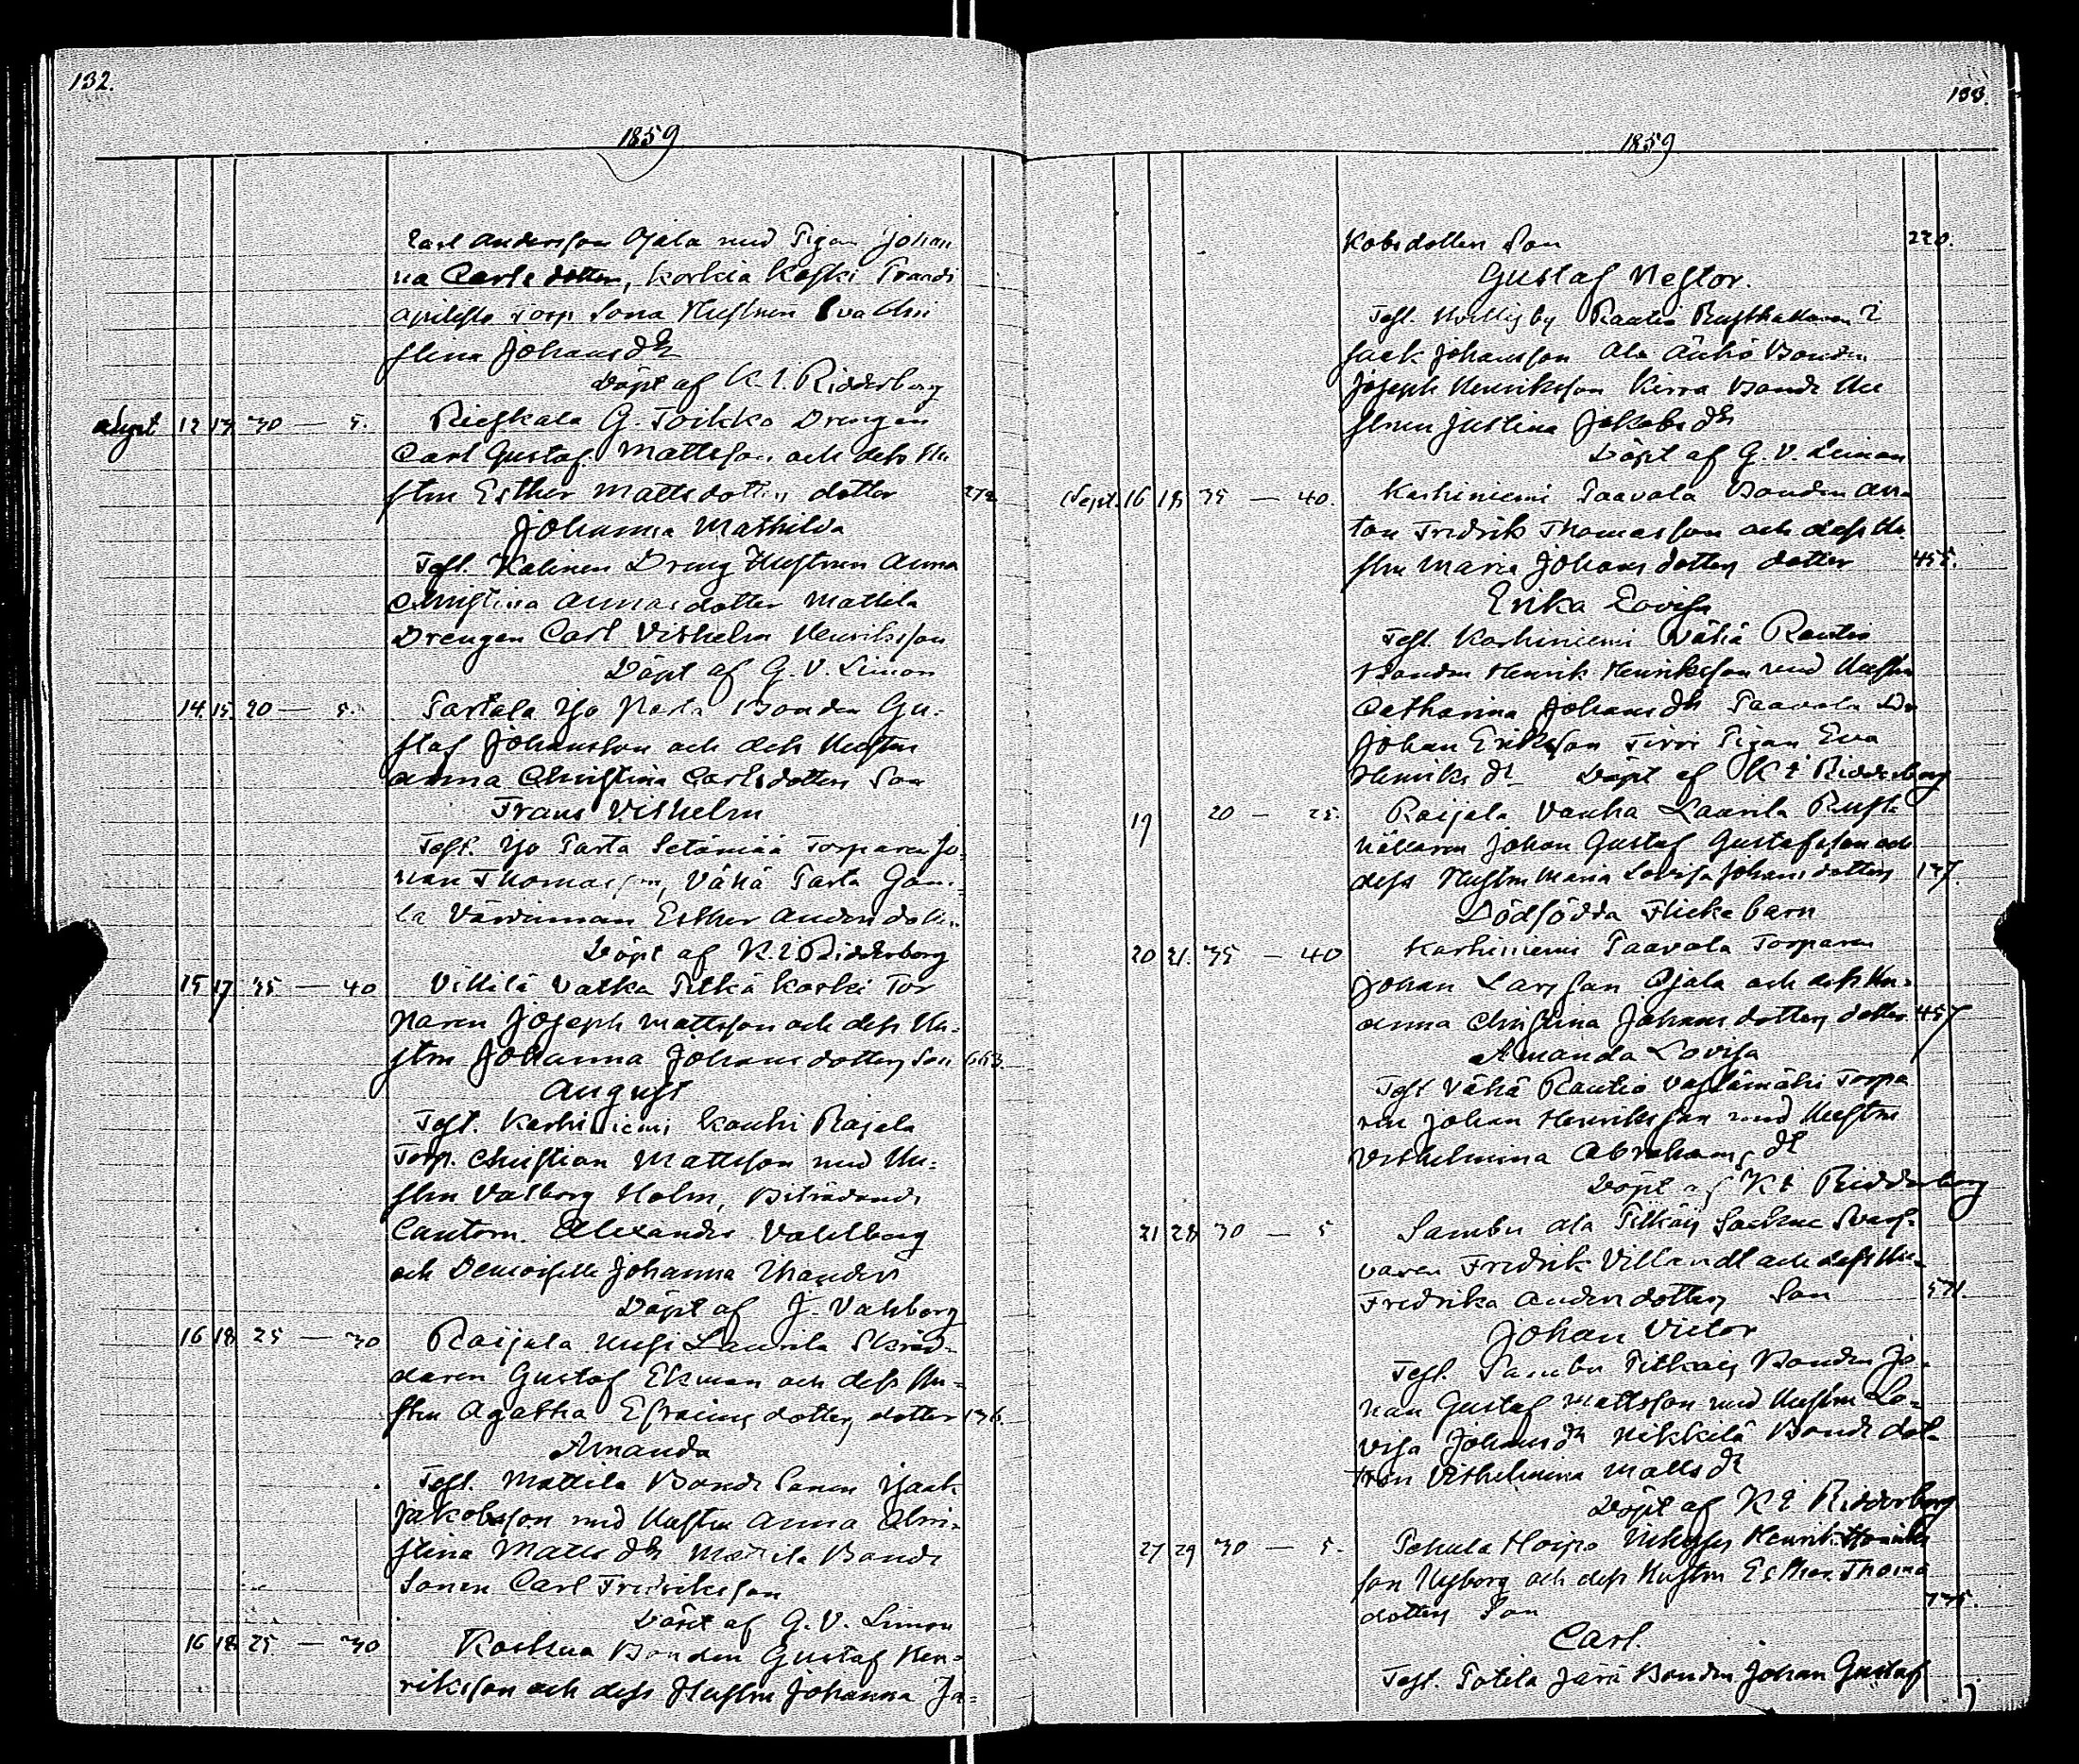 132.
1859
Carl Andersson Ojala med Pigan Johan
na Carlsdotter, Korkia Koski
Torp Sona Hustrun Eva Chri
stina Johansdr
Döpt af K. E. Ridderborg
Sept 12 14 30 — 5. Rieskala G. Toikko Drengen
Carl Gustaf Mattsson och dess Hu
strn Esther Mattsdotters dotter 272
Johanna Mathilda
Test. Kalinen Dreng Hustrun Anna
Christina Annasdotter Mattila
Drengen Carl Vilhelm Henriksson
Döpt af G. V. Limon
14. 15. 20 — 5. Tastula Yjo Bonden Gu-
staf Johansson och dess Hustru
Anna Christina Carlsdotters Son
Frans Vilhelm
Test. Yjo Tarta Setämää Torparen Jo-
han Thomasson, Vähä Tarta
Värdinnan Esther Anders
Döpt af K. E. Ridderborg
15 17 35 — 40 Villilä Vatka Pitkä Koski Tor
paren Joseph Mattsson och dess Hu-
strn Johanna Johansdotters Son 663.
August
Test. Karhiniemi Kouhi Rajala
Torp. Christian Mattsson med Hu-
strn Valborg Holm, Biträdande
Cantorn Alexander Vahlberg
och Demoiselle Johanna Thander
Döpt af J. Vahberg
16 18 25 — 30 Raijala Uusi Laurila Skräd-
daren Gustaf Ekman och dess Hu-
strn Agatha Efraimsdotters dotter 136.
Amanda
Test. Mattila Bonde Sonen Isaak
Jakobsson med Hustrn Anna Chri-
stina Mattsdr Mattila Bonde
Sonen Carl Fredriksson
Döpt af G. V. Limon
16 18 25. — 30 Bonden Gustaf Hen-
riksson och dess Hustru Johanna Ja-
133.
1859
kobsdotters Son 220.
Gustaf Nestor.
Test. Rautio Rusthållaren I
saak Johansson Ala Äuhö Bonden
Joseph Henriksson Kirra Bonde Hu
strun Justina Jakobsdr
Döpt af G. V. Leiman
Sept. 16 18 35 — 40. Karhiniemi Paavola Bonden An
ton Fredrik Thomasson och dess Hu
strn Maria Johansdotters dotter 455.
Erika Lovisa
Test. Karhiniemi Vähä Rautio
Bonden Henrik Henriksson med Hustrn
Catharina Johansdr Paavola Dr
Johan Eriksson Tirri Pigan Eva
Henriksdr Döpt af K E Ridderborg
19 20 — 25. Raijala Vanha Laurila Rust
hållaren Johan Gustaf Gustafsson och
dess Hustrn Maria Lovisa Johansdotters 137.
Dödfödda Flicke barn
20 21. 35 — 40 Karhiniemi Paavola Torparen
Johan Larsson Ojala och dess Hu-
Anna Christina Johansdotters dotter 457
Amanda Lovisa
Test Vähä Rautio Vastämäki Torpa
ren Johan Henriksson med Hustrn
Vilhelmina Abrahamsdr
Döpt af K E Ridderborg
21 28 30 — 5 Sambu Ala Pitkäs Sockne Svarf-
varen Fredrik Villandt och dess Hu-
Fredrika Andersdotters Son 571.
Johan Victor
Test. Sambu Pitkais Bonden Jo-
han Gustaf Mattsson med Hustrn Lo-
visa Johansdr Nikkilä Bonde dot
tren Vilhelmina Mattsdr
Döpt af K E Ridderborg
27 29 30 — 5. Pehula Hoipo Henrik Henriks
son Nyborg och dess Hustrn Esther Thoma
dotters Son 735.
Carl.
Test. Potila Järä Bonden Johan Gustaf